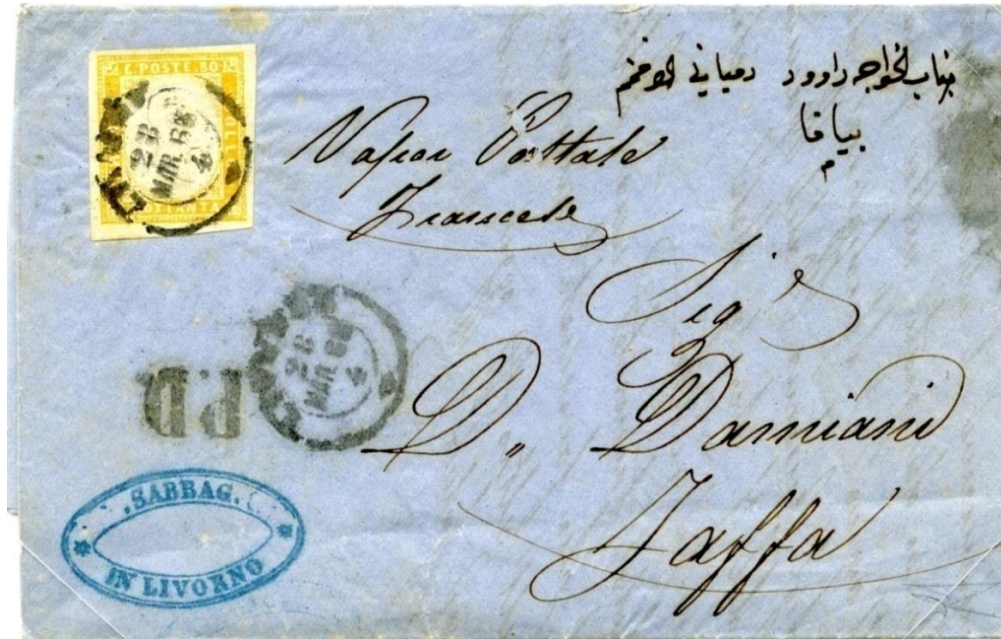 C. POSTE. 80
OTTANTA
LIVORNO
28
MAR. 63
4
جناب الخواجه داوود دمياني الافخم
بيافا
Vapor Postale
Francese
Sig.r
D. Damiani
Jaffa
LIVORNO
28
MAR. 63
4
P.D.
SABBAG.
IN LIVORNO